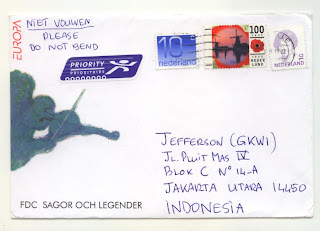 EUROPA
NIET VOUWEN
PLEASE
DO NOT BEND
PRIORITY
PRIORITAIRE
10
nederland
100
NEDER
LAND
NEDERLAND
JEFFERSON (GKWI)
JL. PLUIT MAS IV
BLOK C Nº 14-A
JAKARTA UTARA 14450
INDONESIA
FDC SAGOR OCH LEGENDER